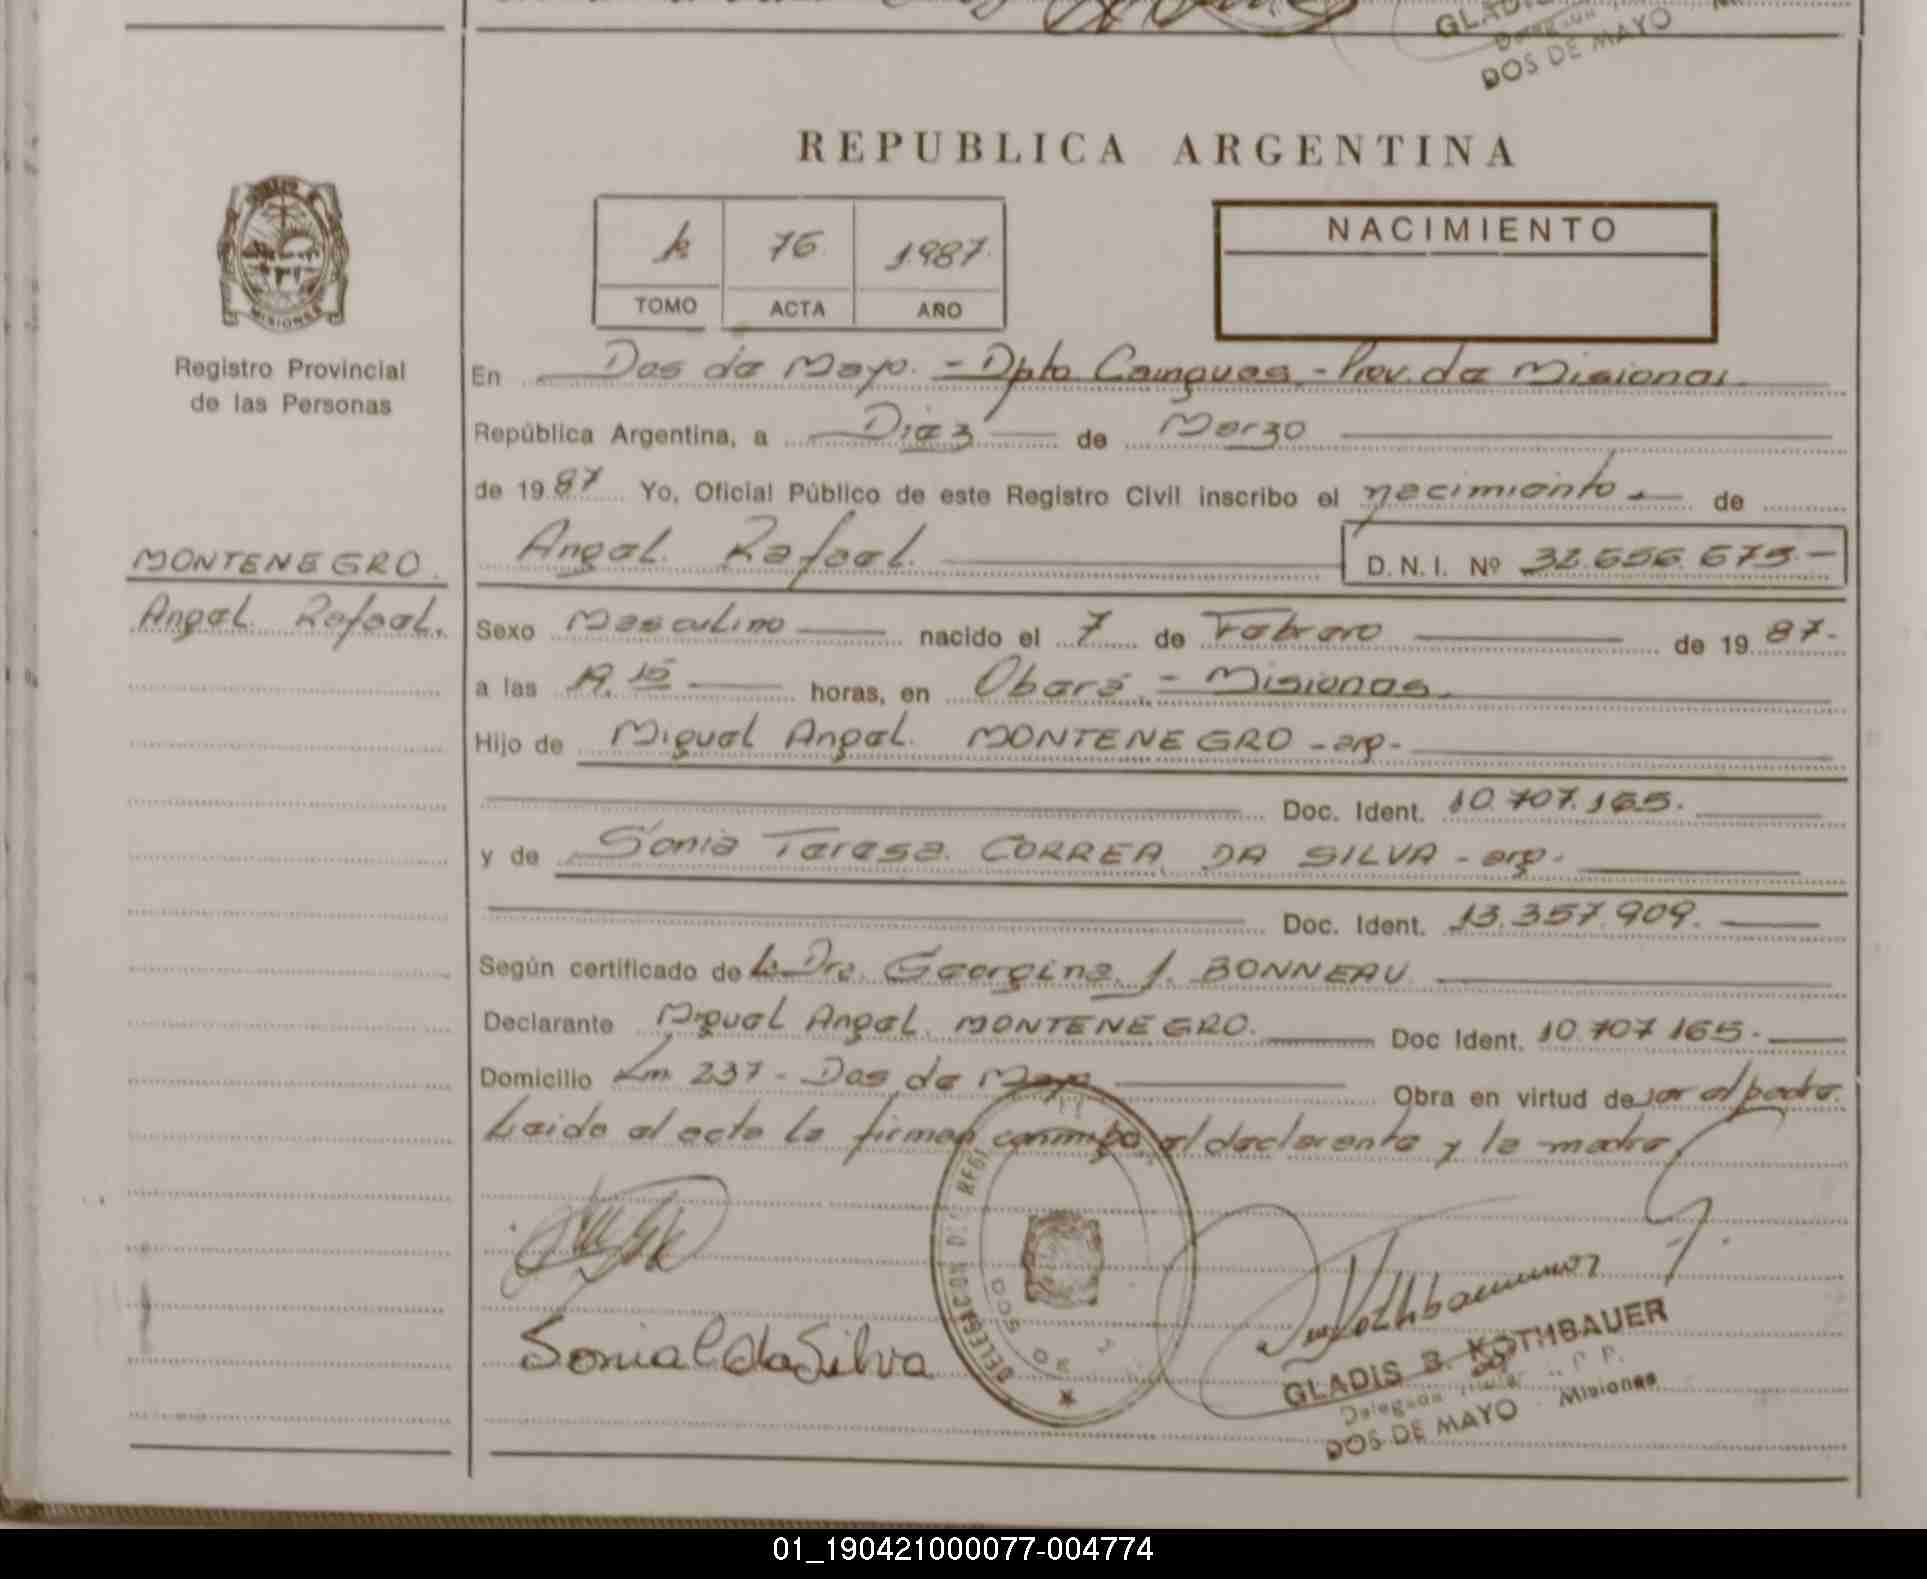 GLADIS
Delegada
DOS DE MAYO
REPUBLICA ARGENTINA
76 1987
TOMO ACTA AÑO
NACIMIENTO
MISIONES
Registro Provincial
de las Personas
En Dos de Mayo. - Dpto Cainguas - Prov. de Misiones
República Argentina, a Diez de Marzo
de 1987 Yo, Oficial Público de este Registro Civil inscribo el nacimiento de
Angel Rafael. D.N.I. Nº 32.656.675.-
MONTENEGRO.
Angel Rafael.
Sexo Masculino nacido el 7 de Febrero de 1987.
a las 19.15 horas, en Oberá. - Misiones.
Hijo de Miguel Angel. MONTENEGRO - arg -
Doc. Ident. 10.707.165.
y de Sonia Teresa. CORREA DA SILVA - arg.
Doc. Ident. 13.357.909.
Según certificado de la Dra. Georgina J. BONNEAU
Declarante Miguel Angel. MONTENEGRO. Doc Ident. 10.707.165.
Domicilio Km 237 - Dos de Mayo Obra en virtud de ser el padre.
Leida el acta la firman conmigo el declarante y la madre
DELEGACION DEL REGI
DOS DE
Sonia C da Silva
GLADIS B. KOTHBAUER
Delegada Titular R. P. P.
DOS DE MAYO - Misiones
01_190421000077-004774